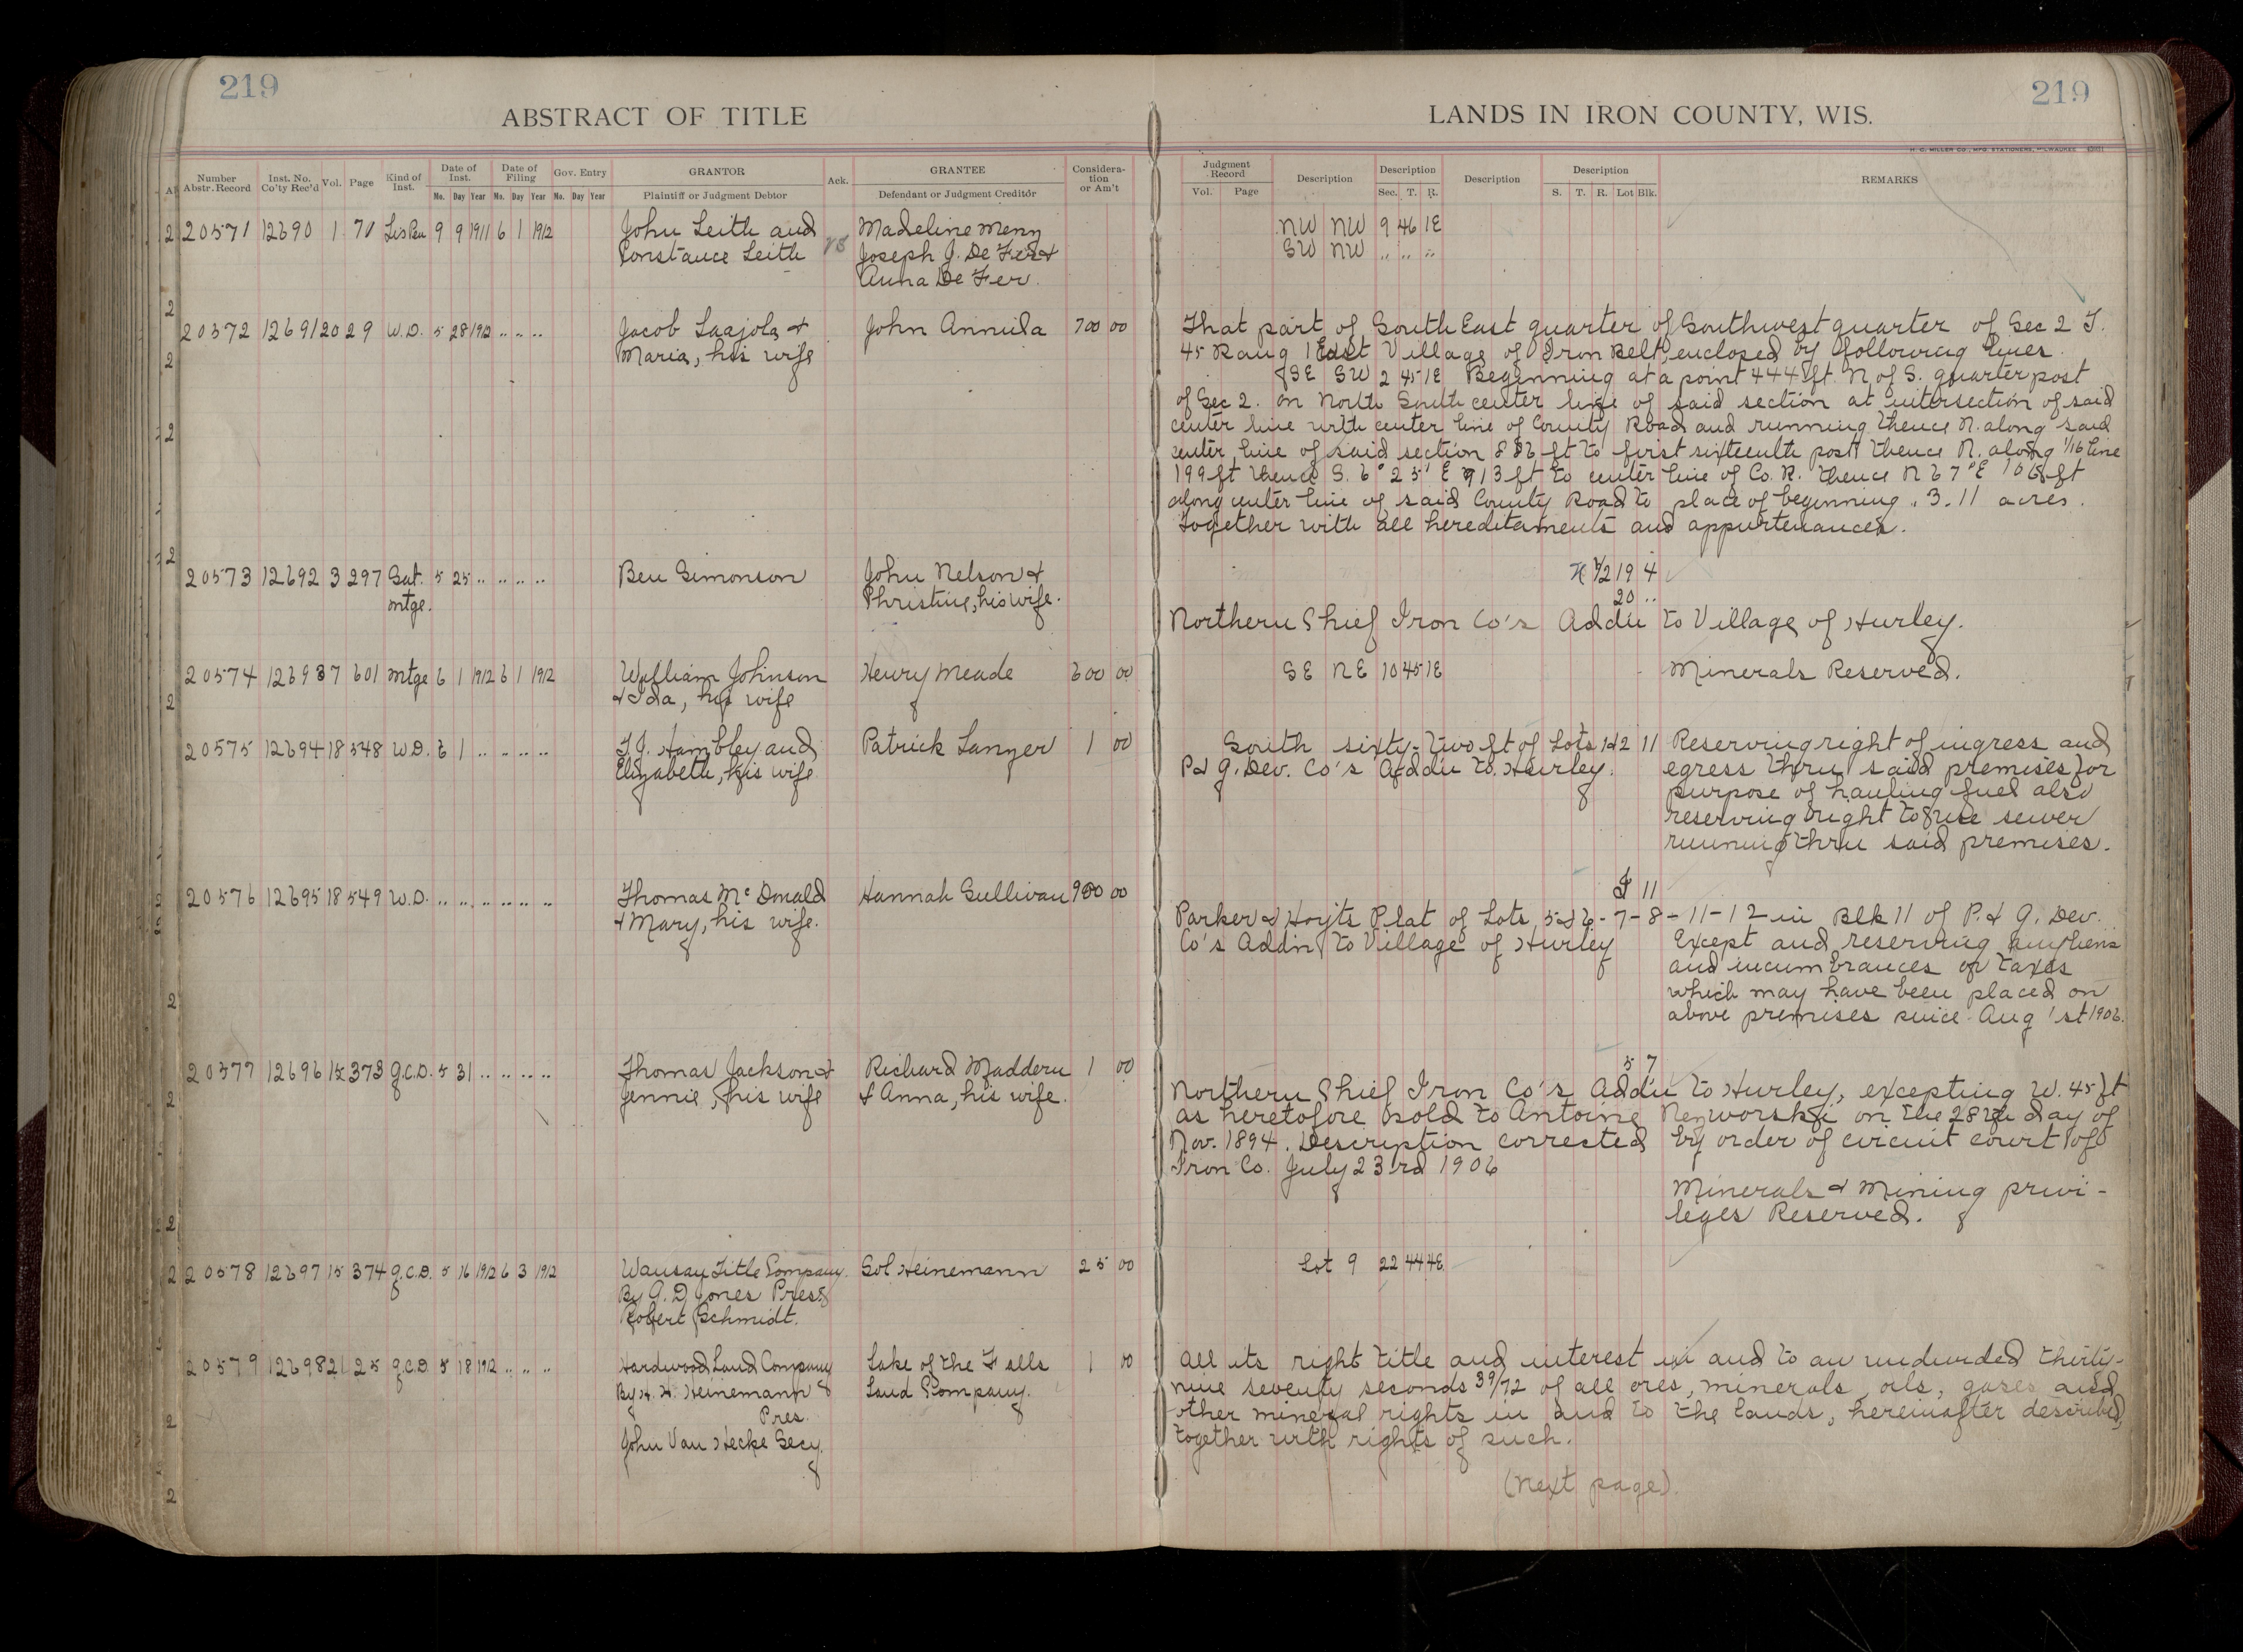 219
219
ABSTRACT OF TITLE
LANDS IN IRON COUNTY, WIS.
H. C. MILLER CO., MFG. STATIONERS, MILWAUKEE
Number Abstr. Record
Inst. No. Co'ty Rec'd
Vol.
Page
Kind of Inst.
Date of Inst.
Date of Filing
Gov. Entry
GRANTOR
Ack.
GRANTEE
Considera-tion or Am't
Mo. Day Year Mo. Day Year Mo. Day Year
Plaintiff or Judgment Debtor
Defendant or Judgment Creditor
Judgment Record
Description
Description
Description
Description
REMARKS
Vol. Page
Sec. T. R.
S. T. R. Lot Blk.
20571 12690 1 71 Lis Pen 9 9 1911 6 1 1912 John Leith and vs Madeline Meny NW NW 9 46 1E
Constance Leith Joseph J. De Fer & SW NW .. .. ..
Anna De Fer.
20572 12691 20 29 W.D. 5 28 1912 .. .. .. Jacob Laajola & John Annula 700 00 That part of South East quarter of Southwest quarter of Sec 2 T.
Maria, his wife 45 Rang 1 East Village of Iron Belt, enclosed by following lines.
SE SW 2 45 1E Beginning at a point 444 ft. N of S. quarter post
of Sec 2. on North South center line of said section at intersection of said
center line with center line of County Road and running thence N. along said
center line of said section 886 ft to first sixteenth post thence N. along 1/16 line
199 ft thence S. 6° 25' E 913 ft to center line of Co. R. thence N 67° E 108 ft
along center line of said County Road to place of beginning. 3.11 acres.
together with all hereditaments and appurtenances.
20573 12692 3 297 Sat. 5 25 .. .. .. .. Ben Simonson John Nelson & N 1/2 19 4
mtge. Christine, his wife. 20 ..
Northern Chief Iron Co's Addn to Village of Hurley.
20574 12693 7 601 mtge 6 1 1912 6 1 1912 William Johnson Henry Meade 600 00 SE NE 10 45 1E Minerals Reserved.
& Ida, his wife
20575 12694 18 548 W.D. 6 1 .. .. .. .. T.J. Hambley and Patrick Lanzer 1 00 South sixty-two ft of Lots 1&2 11 Reserving right of ingress and
Elizabeth, his wife P & G. Dev. Co's Addn to Hurley. egress thru said premises for
purpose of hauling fuel also
reserving right to use sewer
running thru said premises.
20576 12695 18 549 W.D. .. .. .. .. .. .. Thomas McDonald Hannah Sullivan 900 00 I 11
& Mary, his wife. Parker & Hoyts Plat of Lots 5&6-7-8-11-12 in Blk 11 of P. & G. Dev.
Co's Addn to Village of Hurley Except and reserving any liens
and incumbrances or taxes
which may have been placed on
above premises since Aug 1st 1906.
20577 12696 15 373 Q.C.D. 5 31 .. .. .. .. Thomas Jackson & Richard Maddern 1 00 5 7
Jennie, his wife & Anna, his wife. Northern Chief Iron Co's Addn to Hurley, excepting W. 45 ft
as heretofore sold to Antoine on the 28th day of
Nov. 1894. Description corrected by order of circuit court of
Iron Co. July 23rd 1906
Minerals & Mining privi-
leges Reserved.
20578 12697 15 374 Q.C.D. 5 16 1912 6 3 1912 Wausau Title Company. Sol Heinemann 25 00 Lot 9 22 44 4E
By G. D Jones Pres &
Robert Schmidt.
20579 12698 21 25 Q.C.D. 5 18 1912 .. .. .. Hardwood Land Company Lake of the Falls 1 00 All its right title and interest in and to an undivided thirty-
By H. H. Heinemann Land Company. nine seventy seconds 39/72 of all ores, minerals, oils, gases and
Pres. other mineral rights in and to the lands, hereinafter described,
John Van Hecke Secy. together with rights of such.
(Next page)